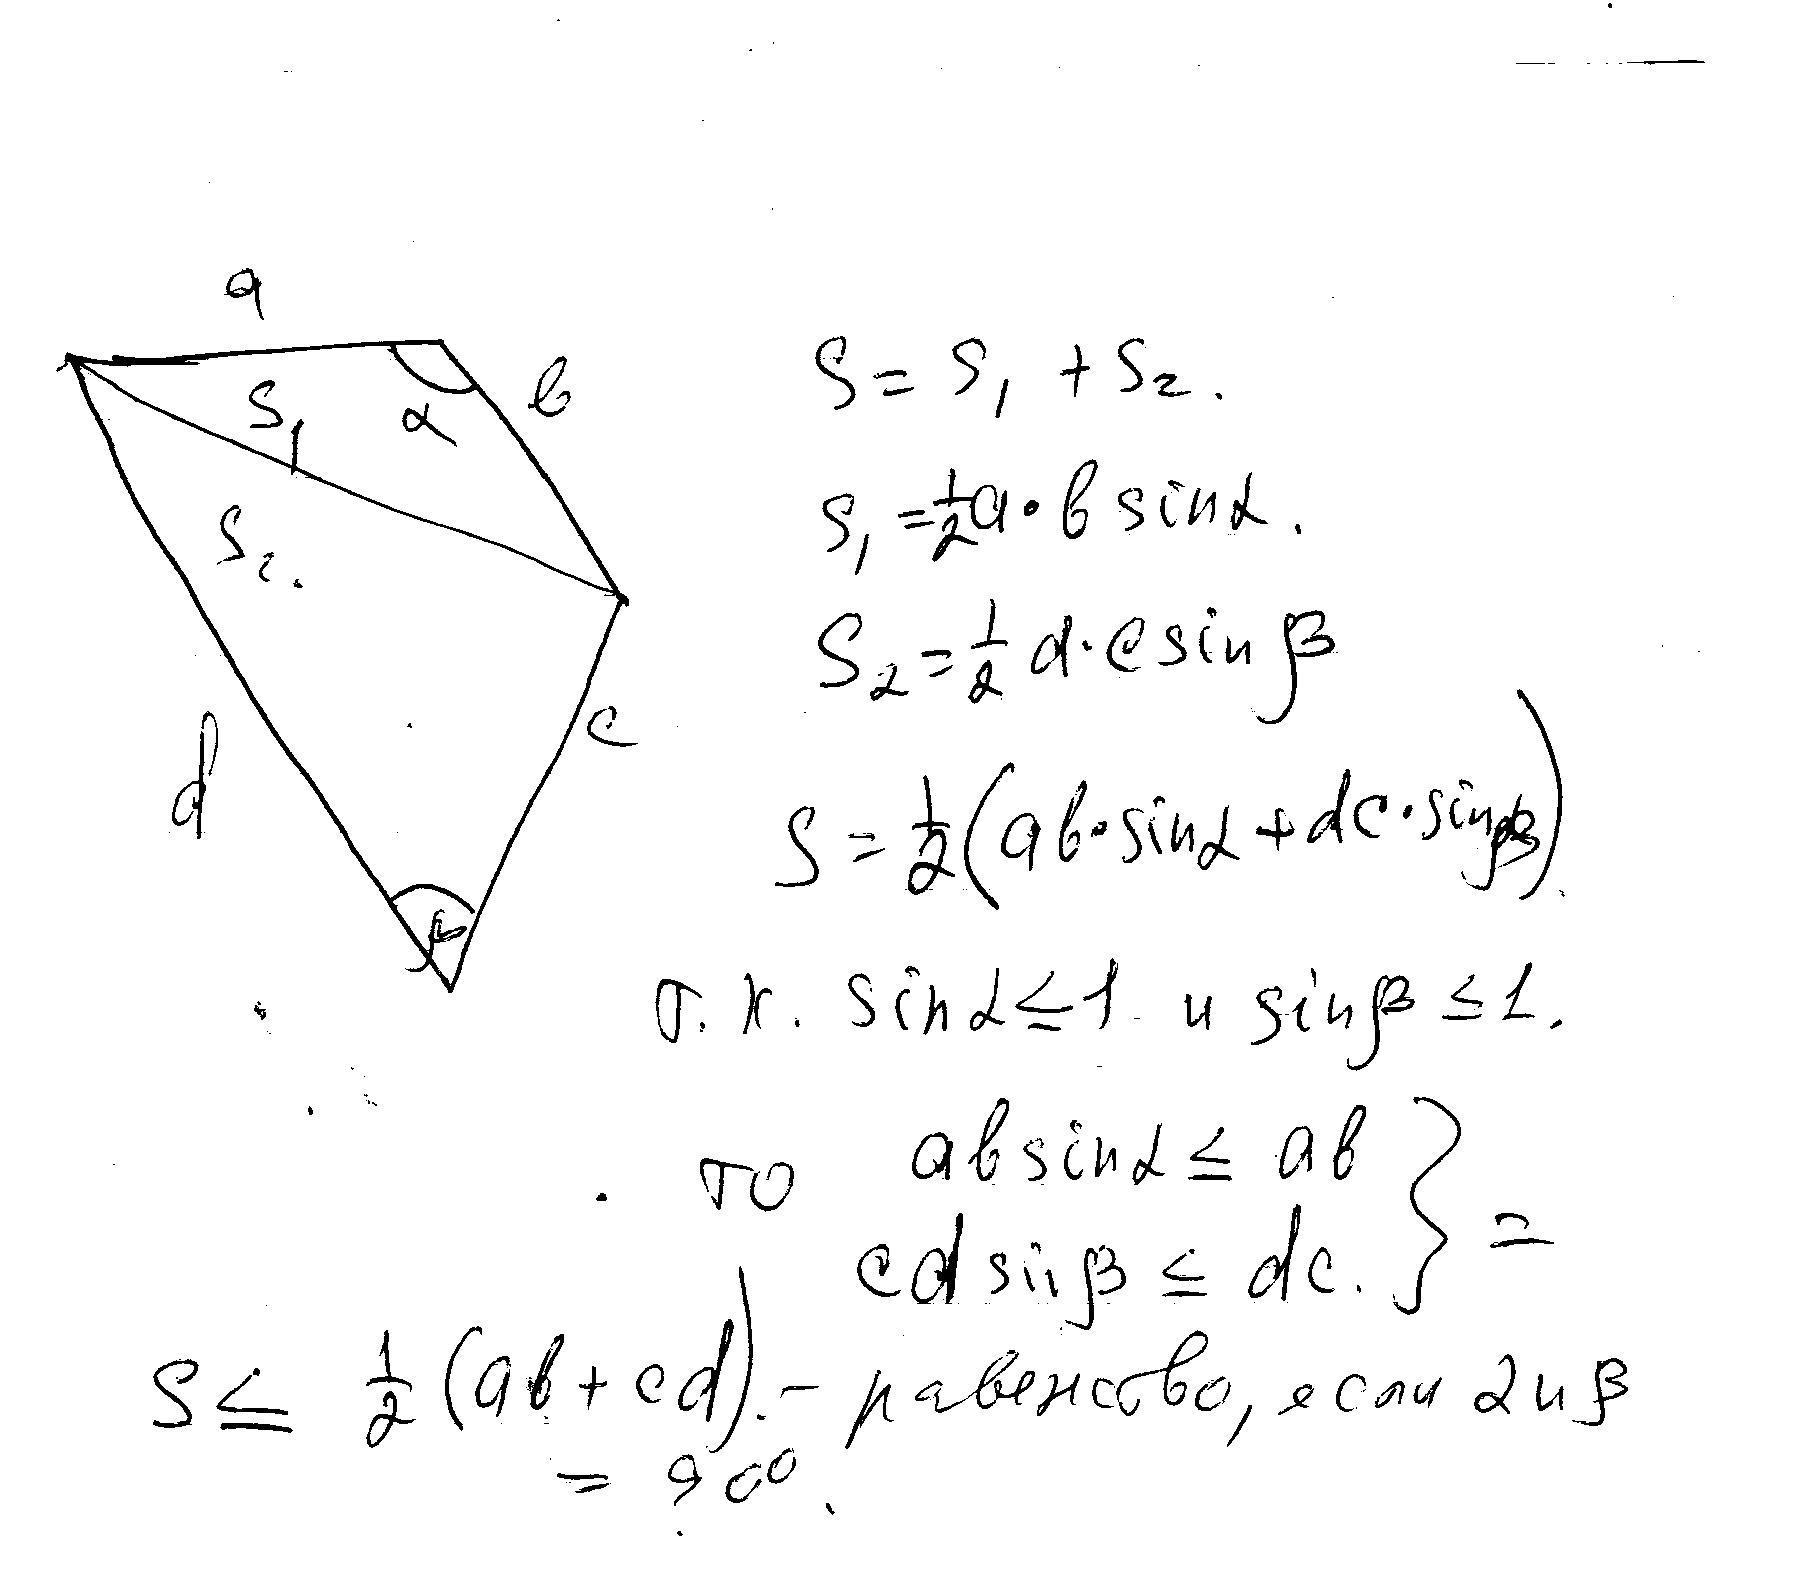 a
b
S₁
α
S₂.
d
c
β
S = S₁ + S₂.
S₁ = 1/2 a · b sin α.
S₂ = 1/2 d · c sin β
S = 1/2 (ab · sin α + dc · sin β)
т.к. sin α ≤ 1 и sin β ≤ 1.
то ab sin α ≤ ab } =
cd sin β ≤ dc.
S ≤ 1/2 (ab + cd). – равенство, если α и β
= 90°.